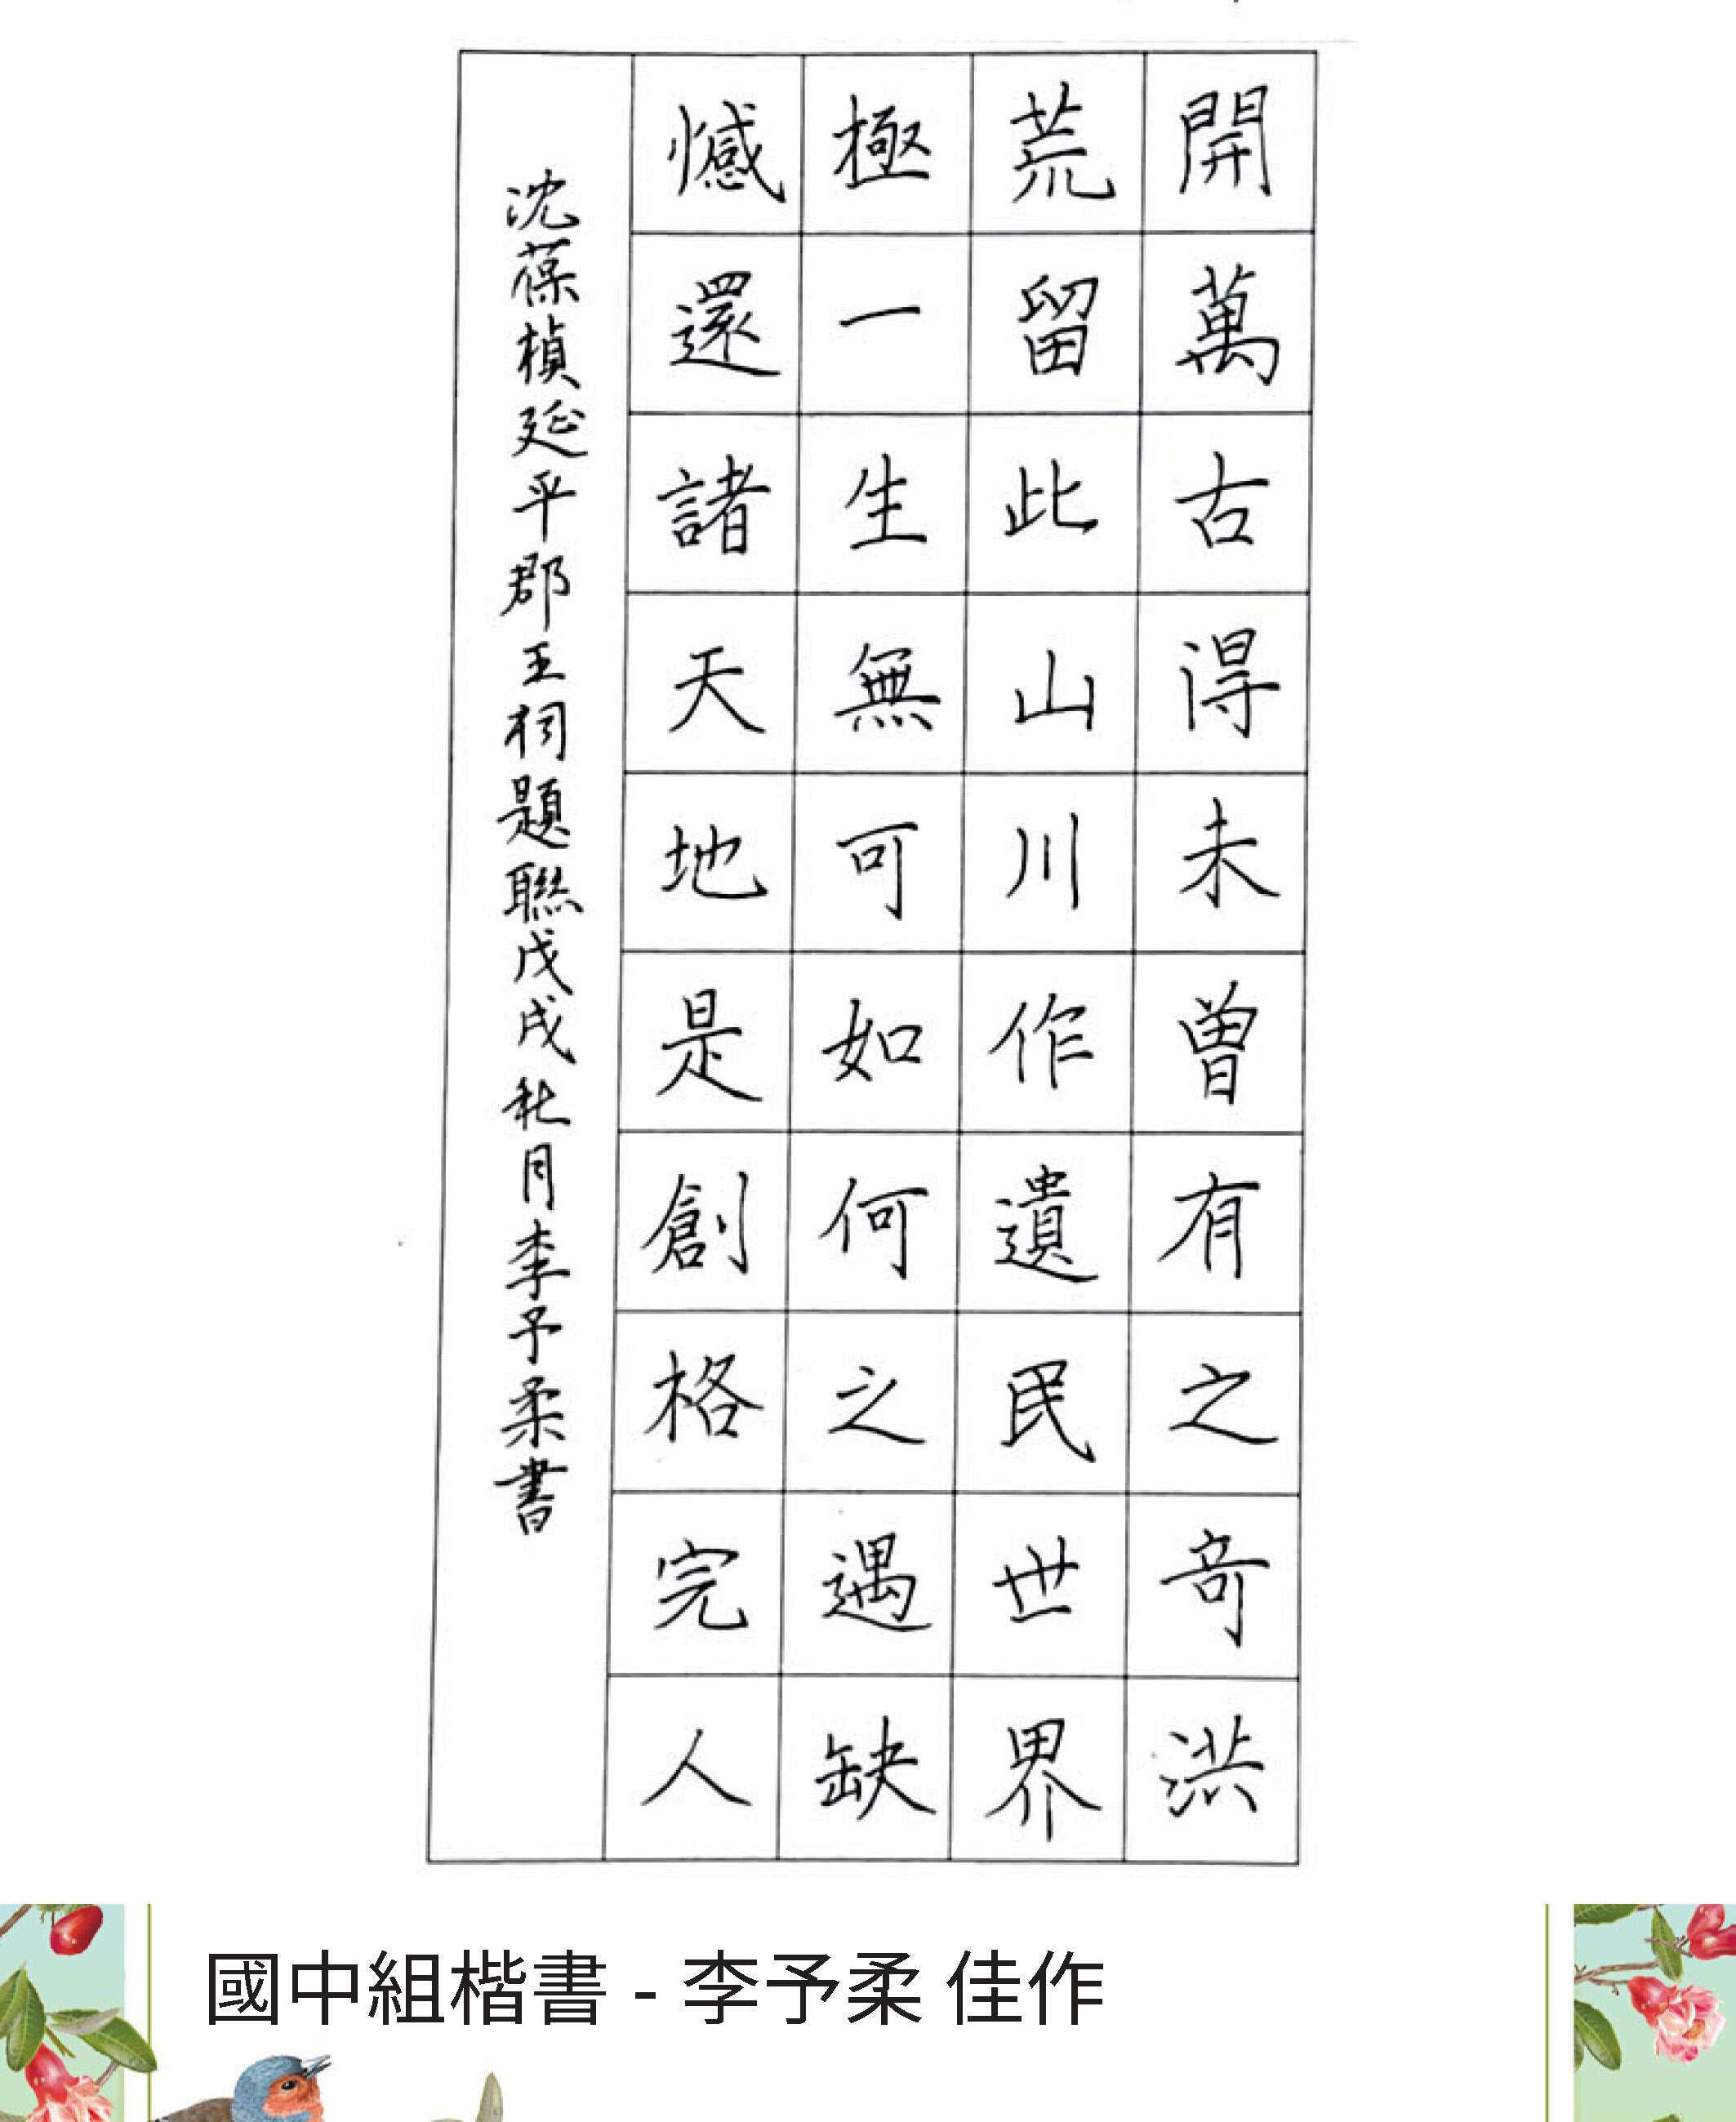 開萬古得未曾有之奇洪
荒留此山川作遺民世界
極一生無可如何之遇缺
憾還諸天地是創格完人
沈葆楨延平郡王祠題聯戊戌秋月李予柔書
國中組楷書 - 李予柔 佳作